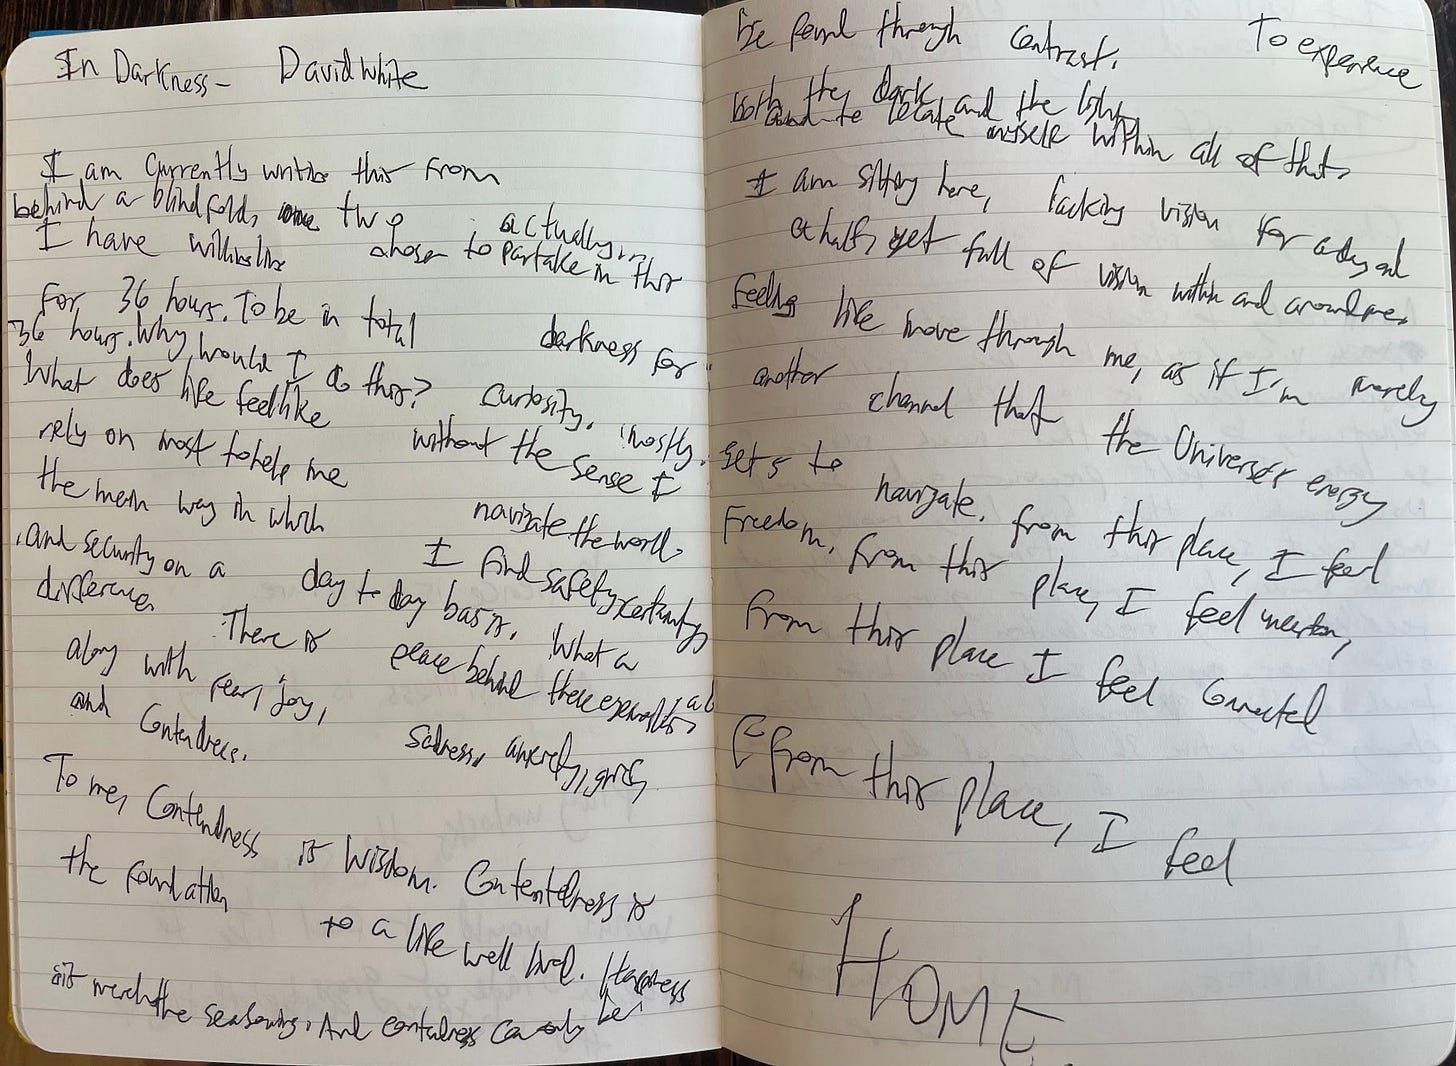 In Darkness - David White
I am currently writing this from
behind a blindfold, two actually...
I have willingly chosen to partake in this
for 36 hours. To be in total darkness for
36 hours. Why would I do this? Curiosity, mostly.
What does life feel like without the sense I
rely on most to help me navigate the world,
the main way in which I find safety, certainty,
and security on a day to day basis. What a
difference. There is peace behind these
along with fear, joy, sadness, anxiety, grief,
and Contendness.
To me, Contendness is Wisdom. Contentedness is
the foundation to a life well lived. Happiness
is merely the seasoning. And contendness can only be
be found through contrast. To experience
both the dark and the light
and to locate myself within all of that.
I am sitting here, lacking vision for a day and
a half, yet full of vision within and around me.
Feeling life move through me, as if I'm merely
another channel that the Universe's energy
gets to navigate. From this place, I feel
Freedom. From this place, I feel
From this place I feel Connected
From this place, I feel
HOME.